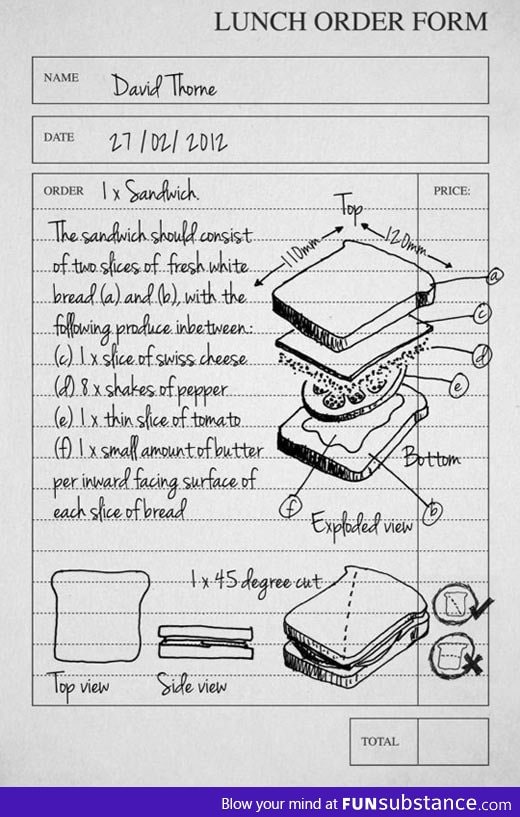 LUNCH ORDER FORM
NAME David Thorne
DATE 27/02/2012
ORDER 1 x Sandwich.
PRICE:
The sandwich should consist
of two slices of fresh white
bread (a) and (b), with the
following produce inbetween:
(c) 1 x slice of swiss cheese
(d) 8 x shakes of pepper
(e) 1 x thin slice of tomato
(f) 1 x small amount of butter
per inward facing surface of
each slice of bread
Top
110mm
120mm
a
c
d
e
Bottom
f
b
Exploded view
1 x 45 degree cut
Top view
Side view
TOTAL
Blow your mind at FUNsubstance.com